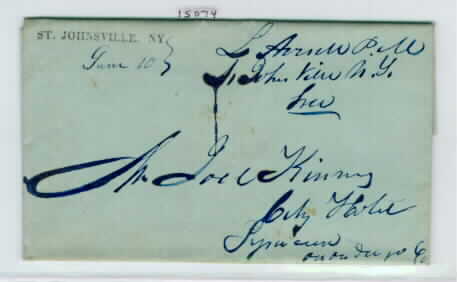 15074
ST. JOHNSVILLE. NY
June 10
P. M
St Johns Ville N.Y.
Free
Mr. Joel Kinney
City Hotel
Syracuse
onondaga Co